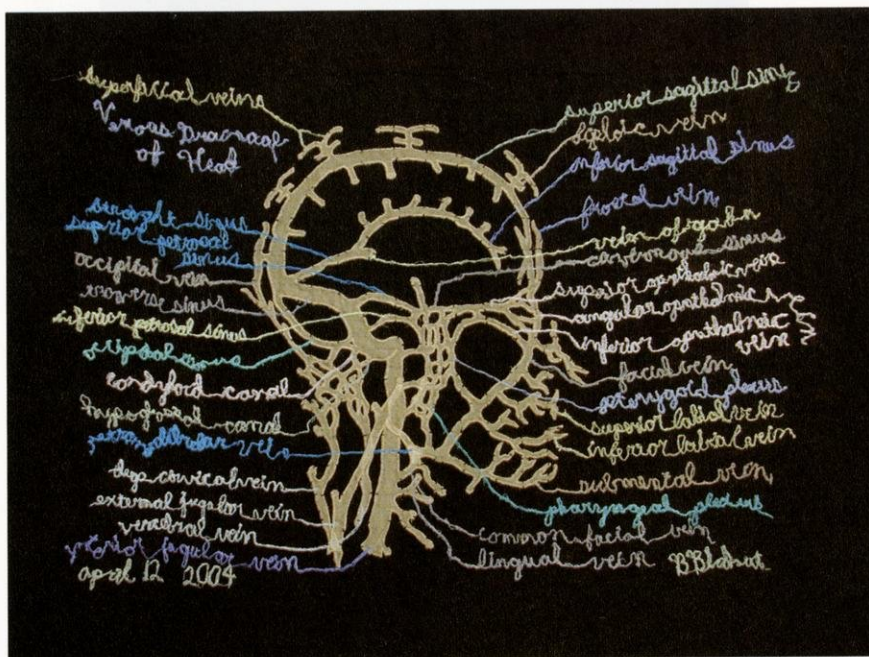 superficial veins
Venous Drainage
of Head
straight sinus
suprior petrosal
sinus
occipital vein
traverse sinus
inferior petrosal sinus
condyloid canal
hypoglossal canal
deep cervical vein
external jugular vein
vertebral vein
jugular vein
april 12 2004
superior sagittal sinus
vein
inferior sagittal sinus
frontal vein
vein of galn
cavernous sinus
superior opthalmic vein
angular opthalmic
inferior opthalmic
vein
facial vein
pterygoid plexus
superior labial vein
inferior labial vein
submental vein
pharyngeal plexus
common facial vein
lingual vein